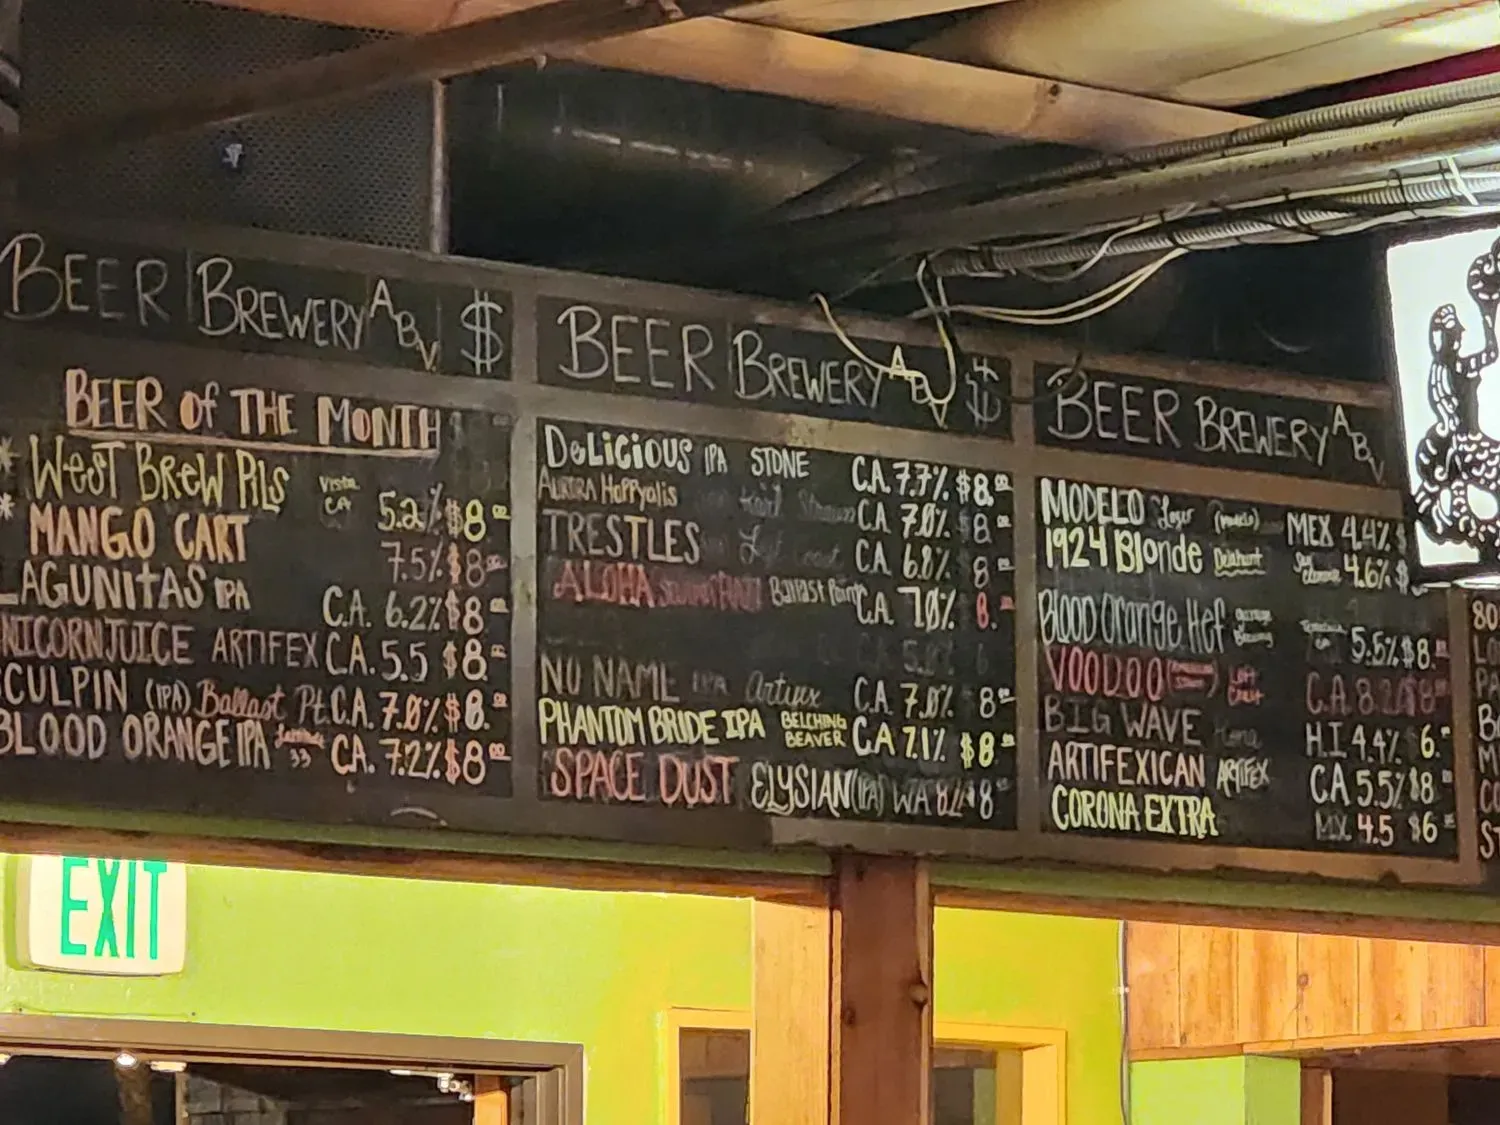 BEER BREWERY ABV $
BEER OF THE MONTH
* WEST BREW PILS Vista CA 5.2% $8.00
* MANGO CART 7.5% $8.00
LAGUNITAS IPA CA. 6.2% $8.00
NICORNJUICE ARTIFEX CA. 5.5 $8.00
SCULPIN (IPA) Ballast Pt. CA. 7.0% $8.00
BLOOD ORANGE IPA CA. 7.2% $8.00
BEER BREWERY ABV $
DELICIOUS IPA STONE CA. 7.7% $8.00
AURORA Hoppyalis CA 7.0% $8.00
TRESTLES CA 6.8% 8.00
ALOHA Ballast Point CA. 7.0% 8.00
NO NAME IPA Artifex CA. 7.0% 8.00
PHANTOM BRIDE IPA BELCHING BEAVER CA 7.1% $8.00
SPACE DUST ELYSIAN (IPA) WA 8.2% 8.00
BEER BREWERY ABV
MODELO Lager (Modelo) MEX 4.4% $
1924 Blonde Delahunt San Clemente 4.6% $
Blood Orange Hef Temecula CA 5.5% $8.00
VOODOO Left Coast CA 8.2% $8.00
BIG WAVE Kona H.I 4.4% 6.00
ARTIFEXICAN ARTIFEX CA 5.5% $8.00
CORONA EXTRA MX 4.5 $6.00
EXIT